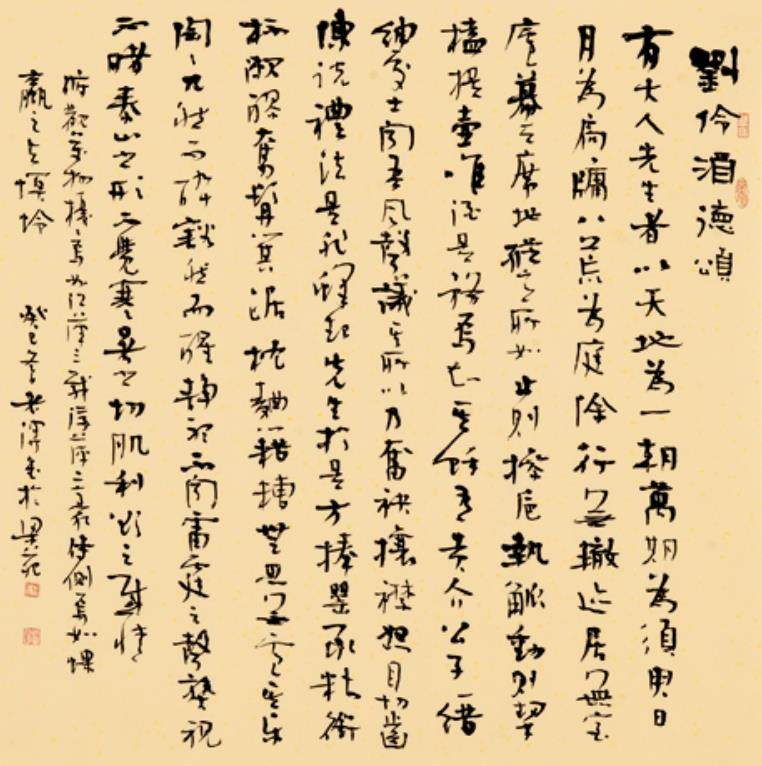 劉伶酒德頌
有大人先生者以天地為一朝萬期為須臾日
月為扃牖八荒為庭除行無轍迹居無室
廬幕天席地縱意所如止則操卮執觚動則挈
榼提壺唯酒是務焉知其餘有貴介公子縉
紳處士聞吾風聲議其所以乃奮袂攘襟怒目切齒
陳說禮法是非鋒起先生於是方捧罌承糟銜
杯漱醪奮髯箕踞枕麴藉糟無思無慮其樂
陶陶兀然而醉豁然而醒靜聽不聞雷霆之聲熟視
不睹泰山之形不覺寒暑之切肌利欲之感情
俯觀萬物擾焉如江漢之載浮萍二豪侍側焉如蜾
蠃之與螟蛉 癸巳 於梁苑